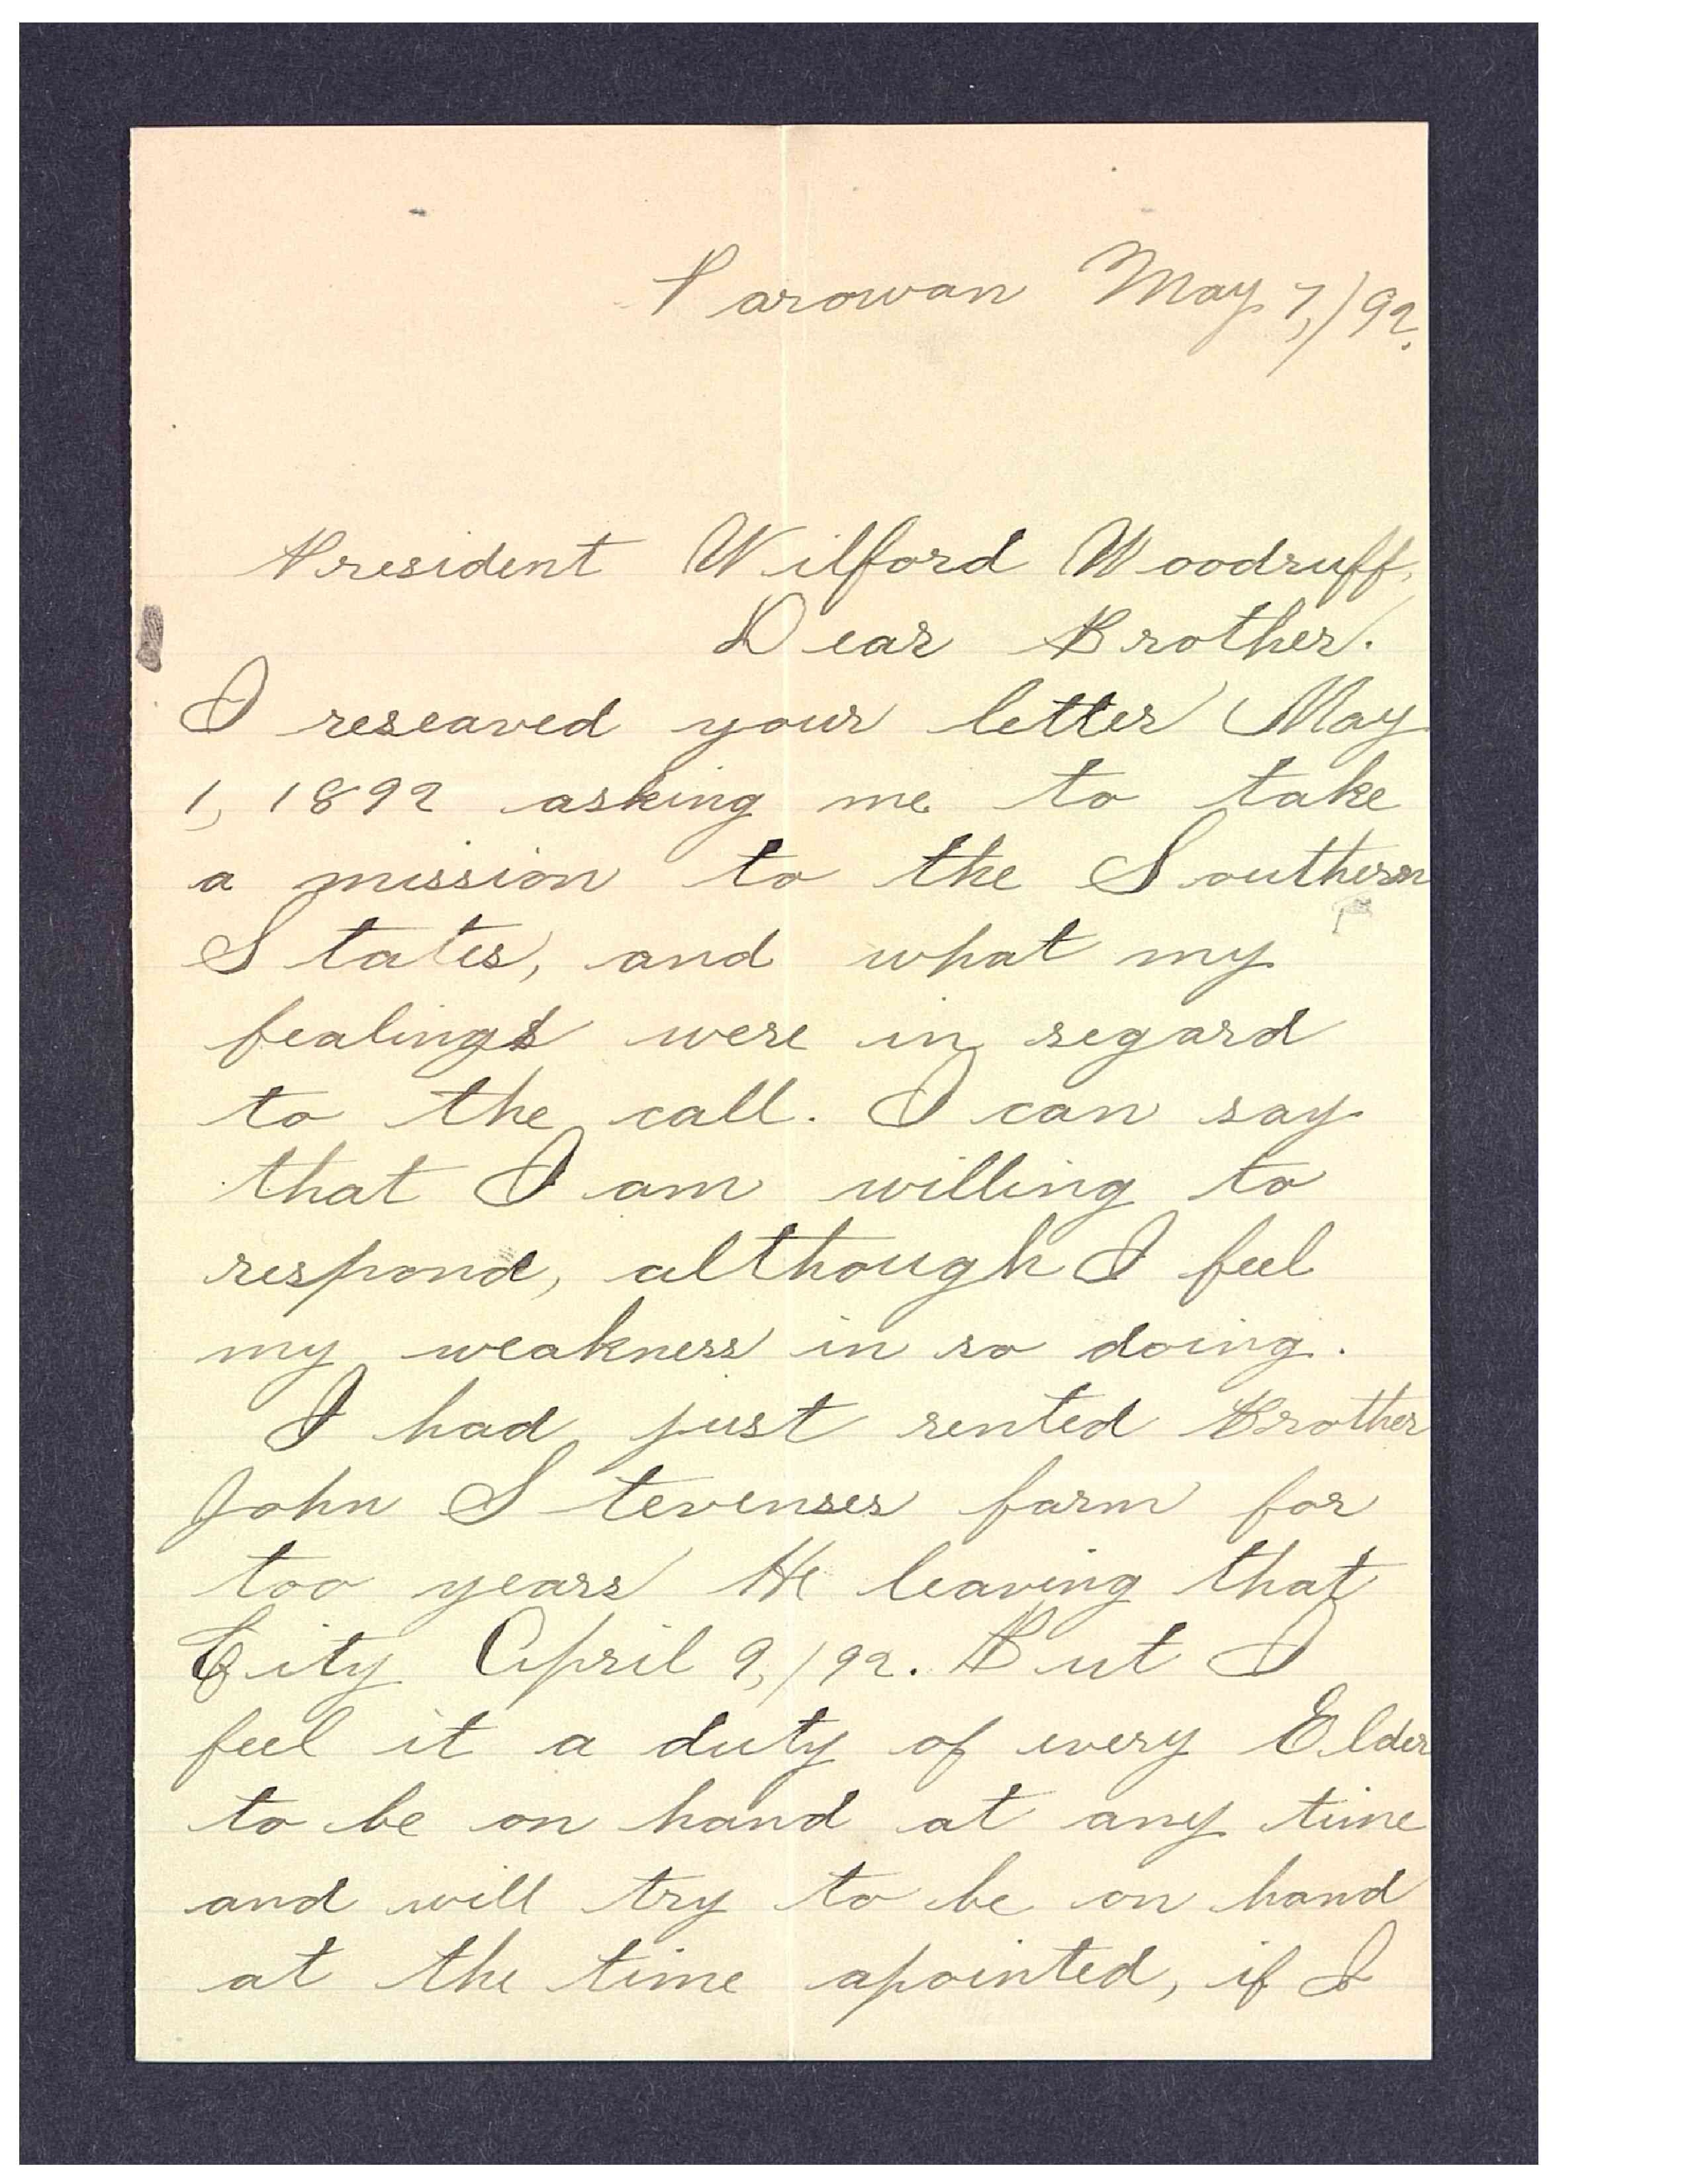 Parowan May 7,/92.
President Wilford Woodruff,
Dear Brother.
I reseaved your letter May
1, 1892 asking me to take
a mission to the Southern
States, and what my
fealings were in regard
to the call. I can say
that I am willing to
respond, although I feel
my weakness in so doing.
I had just rented Brother
John Stevenses farm for
too years He leaving that
City April 9,/92. But I
feel it a duty of every Elder
to be on hand at any time
and will try to be on hand
at the time apointed, if I